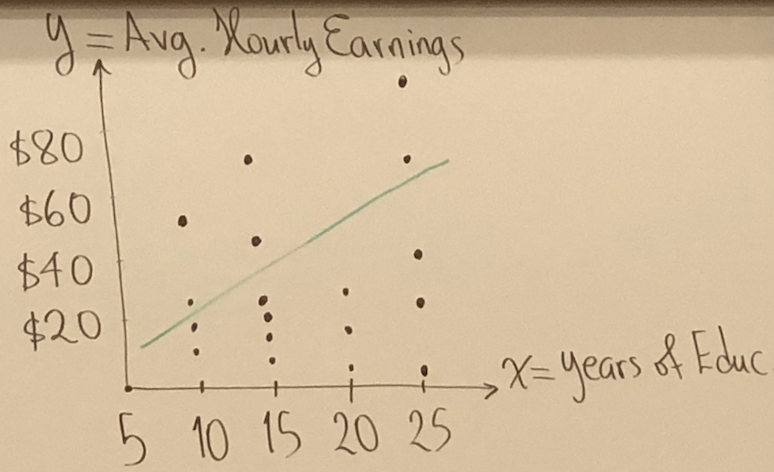 y = Avg. Hourly Earnings
$80
$60
$40
$20
x = years of Educ.
5 10 15 20 25